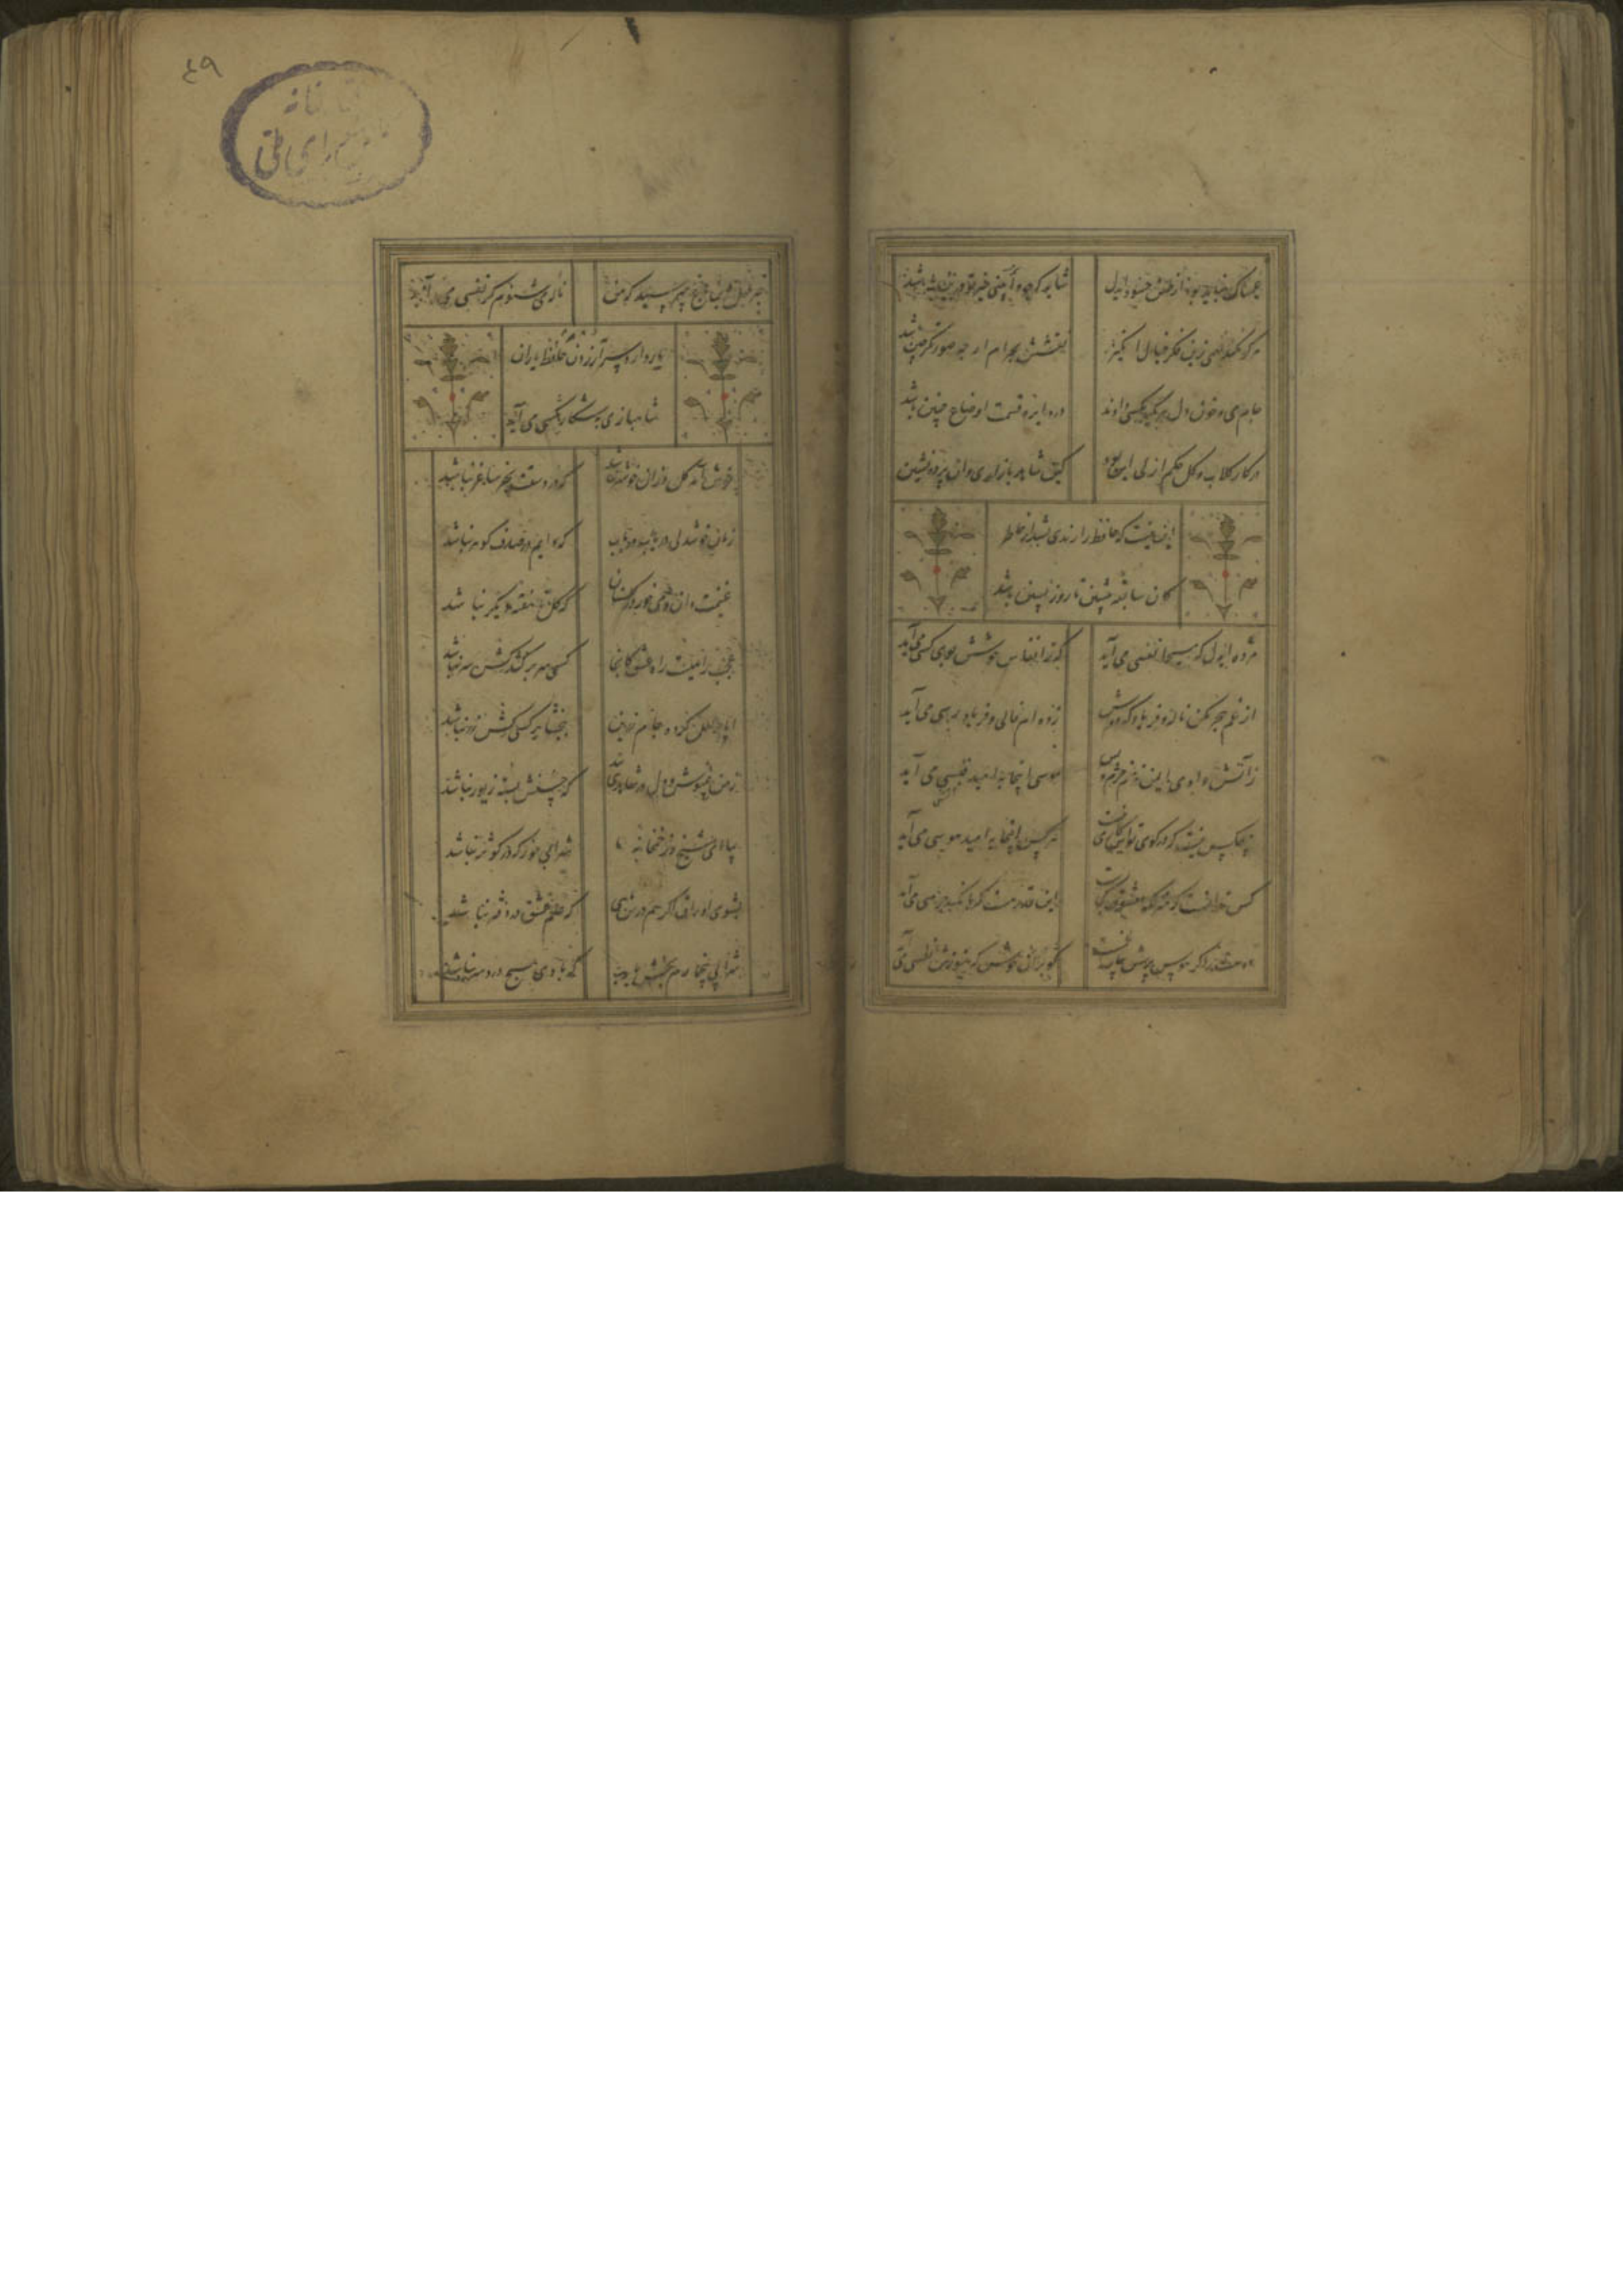 غمناک نباید بود از طعن حسود ای دل
شاید که چو وابینی خیر تو درین باشد
هر کو نکند فهمی زین کلک خیال انگیز
نقشش بحرام ار خود صورتگر چین باشد
جام می و خون دل هر یک بکسی دادند
در دایره قسمت اوضاع چنین باشد
در کار گلاب و گل حکم ازلی این بود
کین شاهد بازاری وان پرده نشین
این نیست که حافظ را رندی بشد از خاطر
کان سابقه پیشین تا روز پسین باشد
مژده ای دل که مسیحا نفسی می آید
که ز انفاس خوشش بوی کسی می آید
از غم هجر مکن ناله و فریاد که دوش
زده ام فالی و فریاد رسی می آید
ز آتش وادی ایمن نه منم خرم و بس
موسی اینجا به امید قبسی می آید
هیچکس نیست که در کوی تواش کاری نیست
هر کس اینجا به امید هوسی می آید
کس ندانست که منزلگه معشوق کجاست
این قدر هست که بانگ جرسی می آید
دوست را گر سر پرسیدن بیمار غمست
گو بران خوش که هنوزش نفسی می آید
خبر بلبل این باغ مپرسید که من
ناله می شنوم کز قفسی می آید
یار دارد سر آزردن حافظ یاران
شاهبازی بشکار مگسی می آید
خوش آمد گل وزان خوشتر نباشد
که در دستت بجز ساغر نباشد
زمان خوشدلی دریاب دریاب
که دایم در صدف گوهر نباشد
غنیمت دان و می خور در گلستان
که گل تا هفته دیگر نباشد
عجب راهیست راه عشق کانجا
کسی سر بر کند کش سر نباشد
ایا پر لعل کرده جام زرین
ببخشا بر کسی کش زر نباشد
ز من بنیوش و دل در شاهدی بند
که حسنش بسته زیور نباشد
بیا ای شیخ و از خمخانه ما
شرابی خور که در کوثر نباشد
بشوی اوراق اگر هم درس مایی
که علم عشق در دفتر نباشد
شرابی بی خمارم بخش یا رب
که با وی هیچ درد سر نباشد